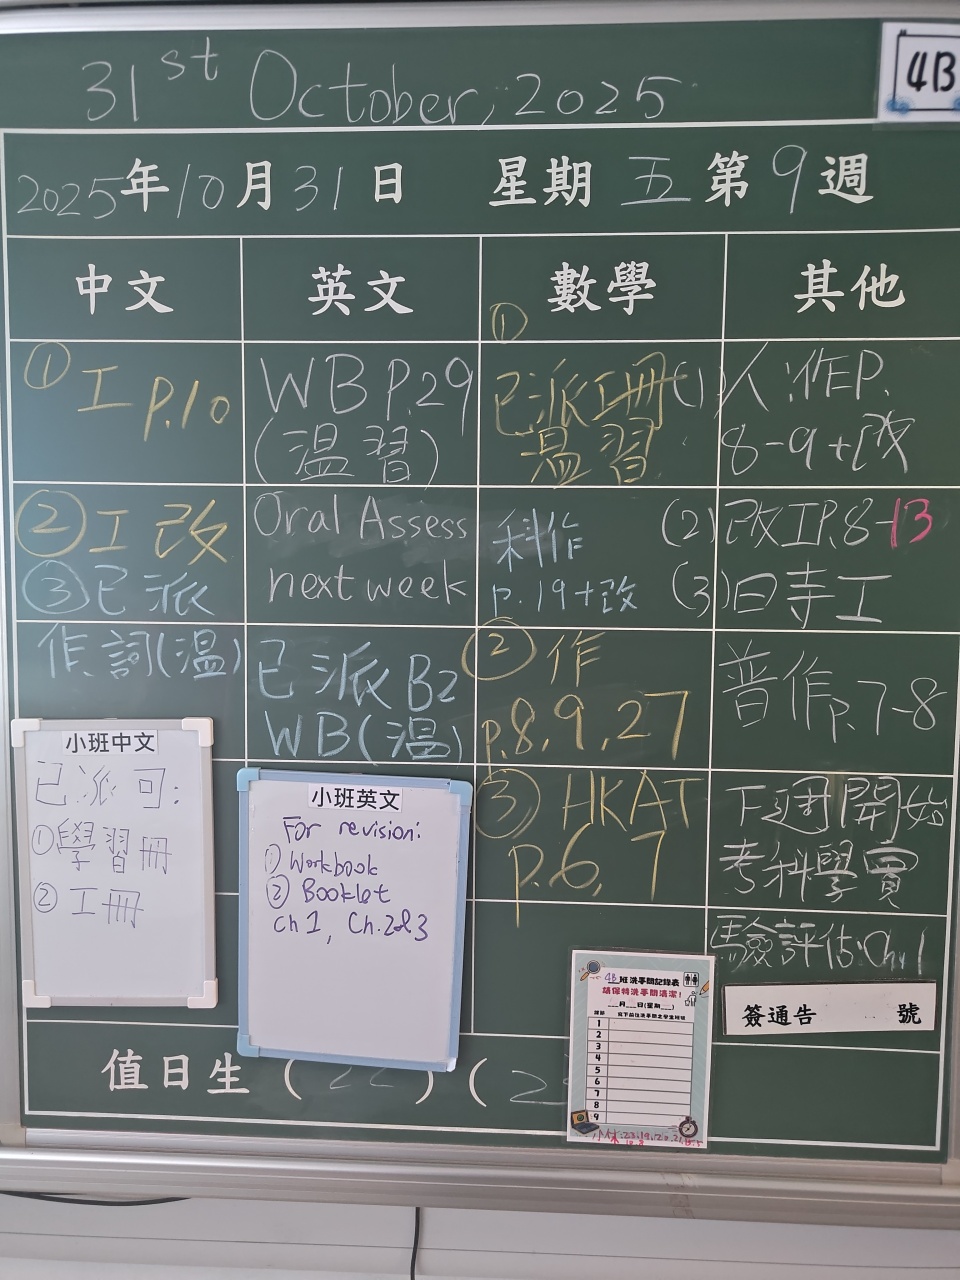 31st October, 2025
4B
2025年10月31日 星期五第9週
中文
英文
數學
其他
① 工 P.10
② 工改
③ 已派
作,詞(溫)
WB P.29
(溫習)
Oral Assess
next week
已派B2
WB(溫)
①
已派工冊
溫習
科作
p.19+改
② 作
p.8,9,27
③ HKAT
p.6,7
(1)人:作P.
8-9+改
(2)改工P.8-13
(3)日寺工
普作p.7-8
下週開始
考科學實
驗評估:Ch.1
小班中文
已派可:
①學習冊
② 工冊
小班英文
For revision:
① Workbook
② Booklet
Ch 1, Ch.2&3
4B班洗手間記錄表
請保持洗手間清潔!
___月___日(星期___)
課節 寫下前往洗手間之學生班號
1
2
3
4
5
6
7
8
9
簽通告 號
值日生(22)(2